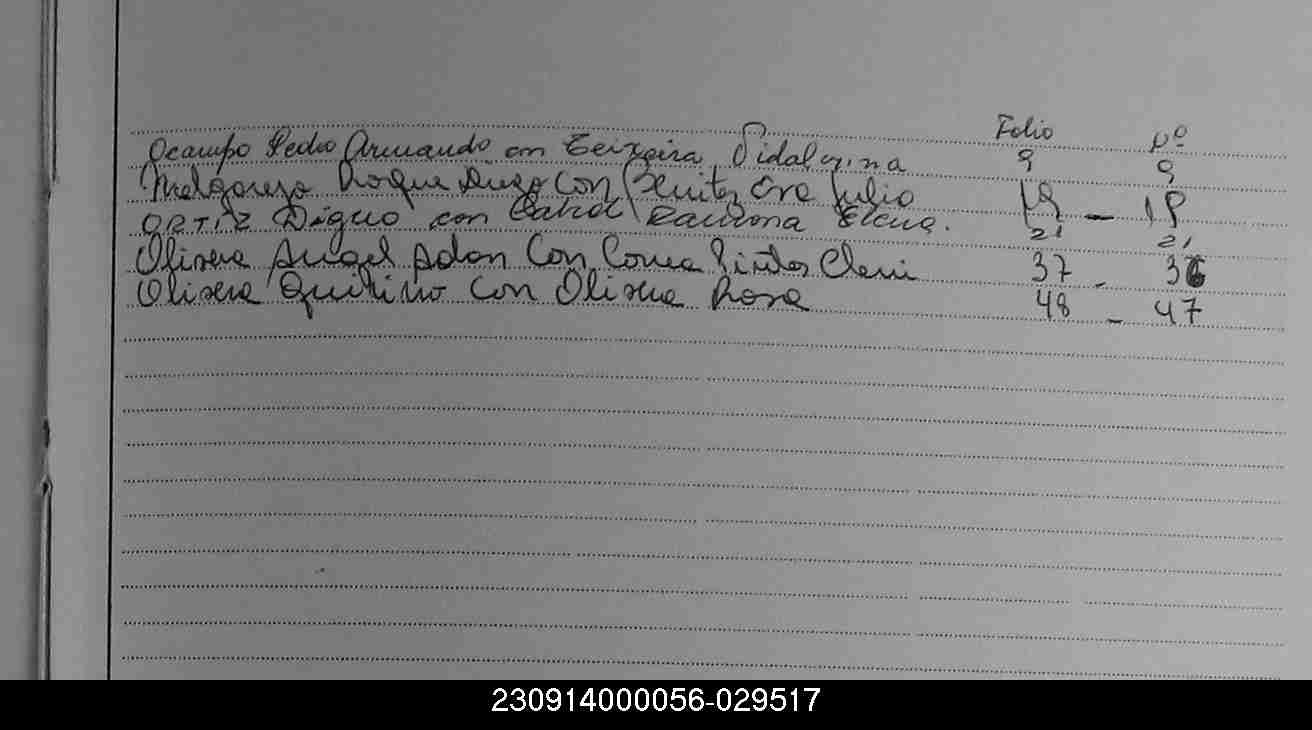 Folio Nº
Ocampo Pedro Armando con Teixeira Vidalvina 9 9
Melgarejo Roque Diego con Benitez Eva Julio 19 - 18
ORTIZ Digno con Ramona Elena. 21 21
Olivera Angel Adan Con Correa Pintos Cleni 37 - 36
Olivera Quirino Con Olivera Rosa 48 - 47
230914000056-029517